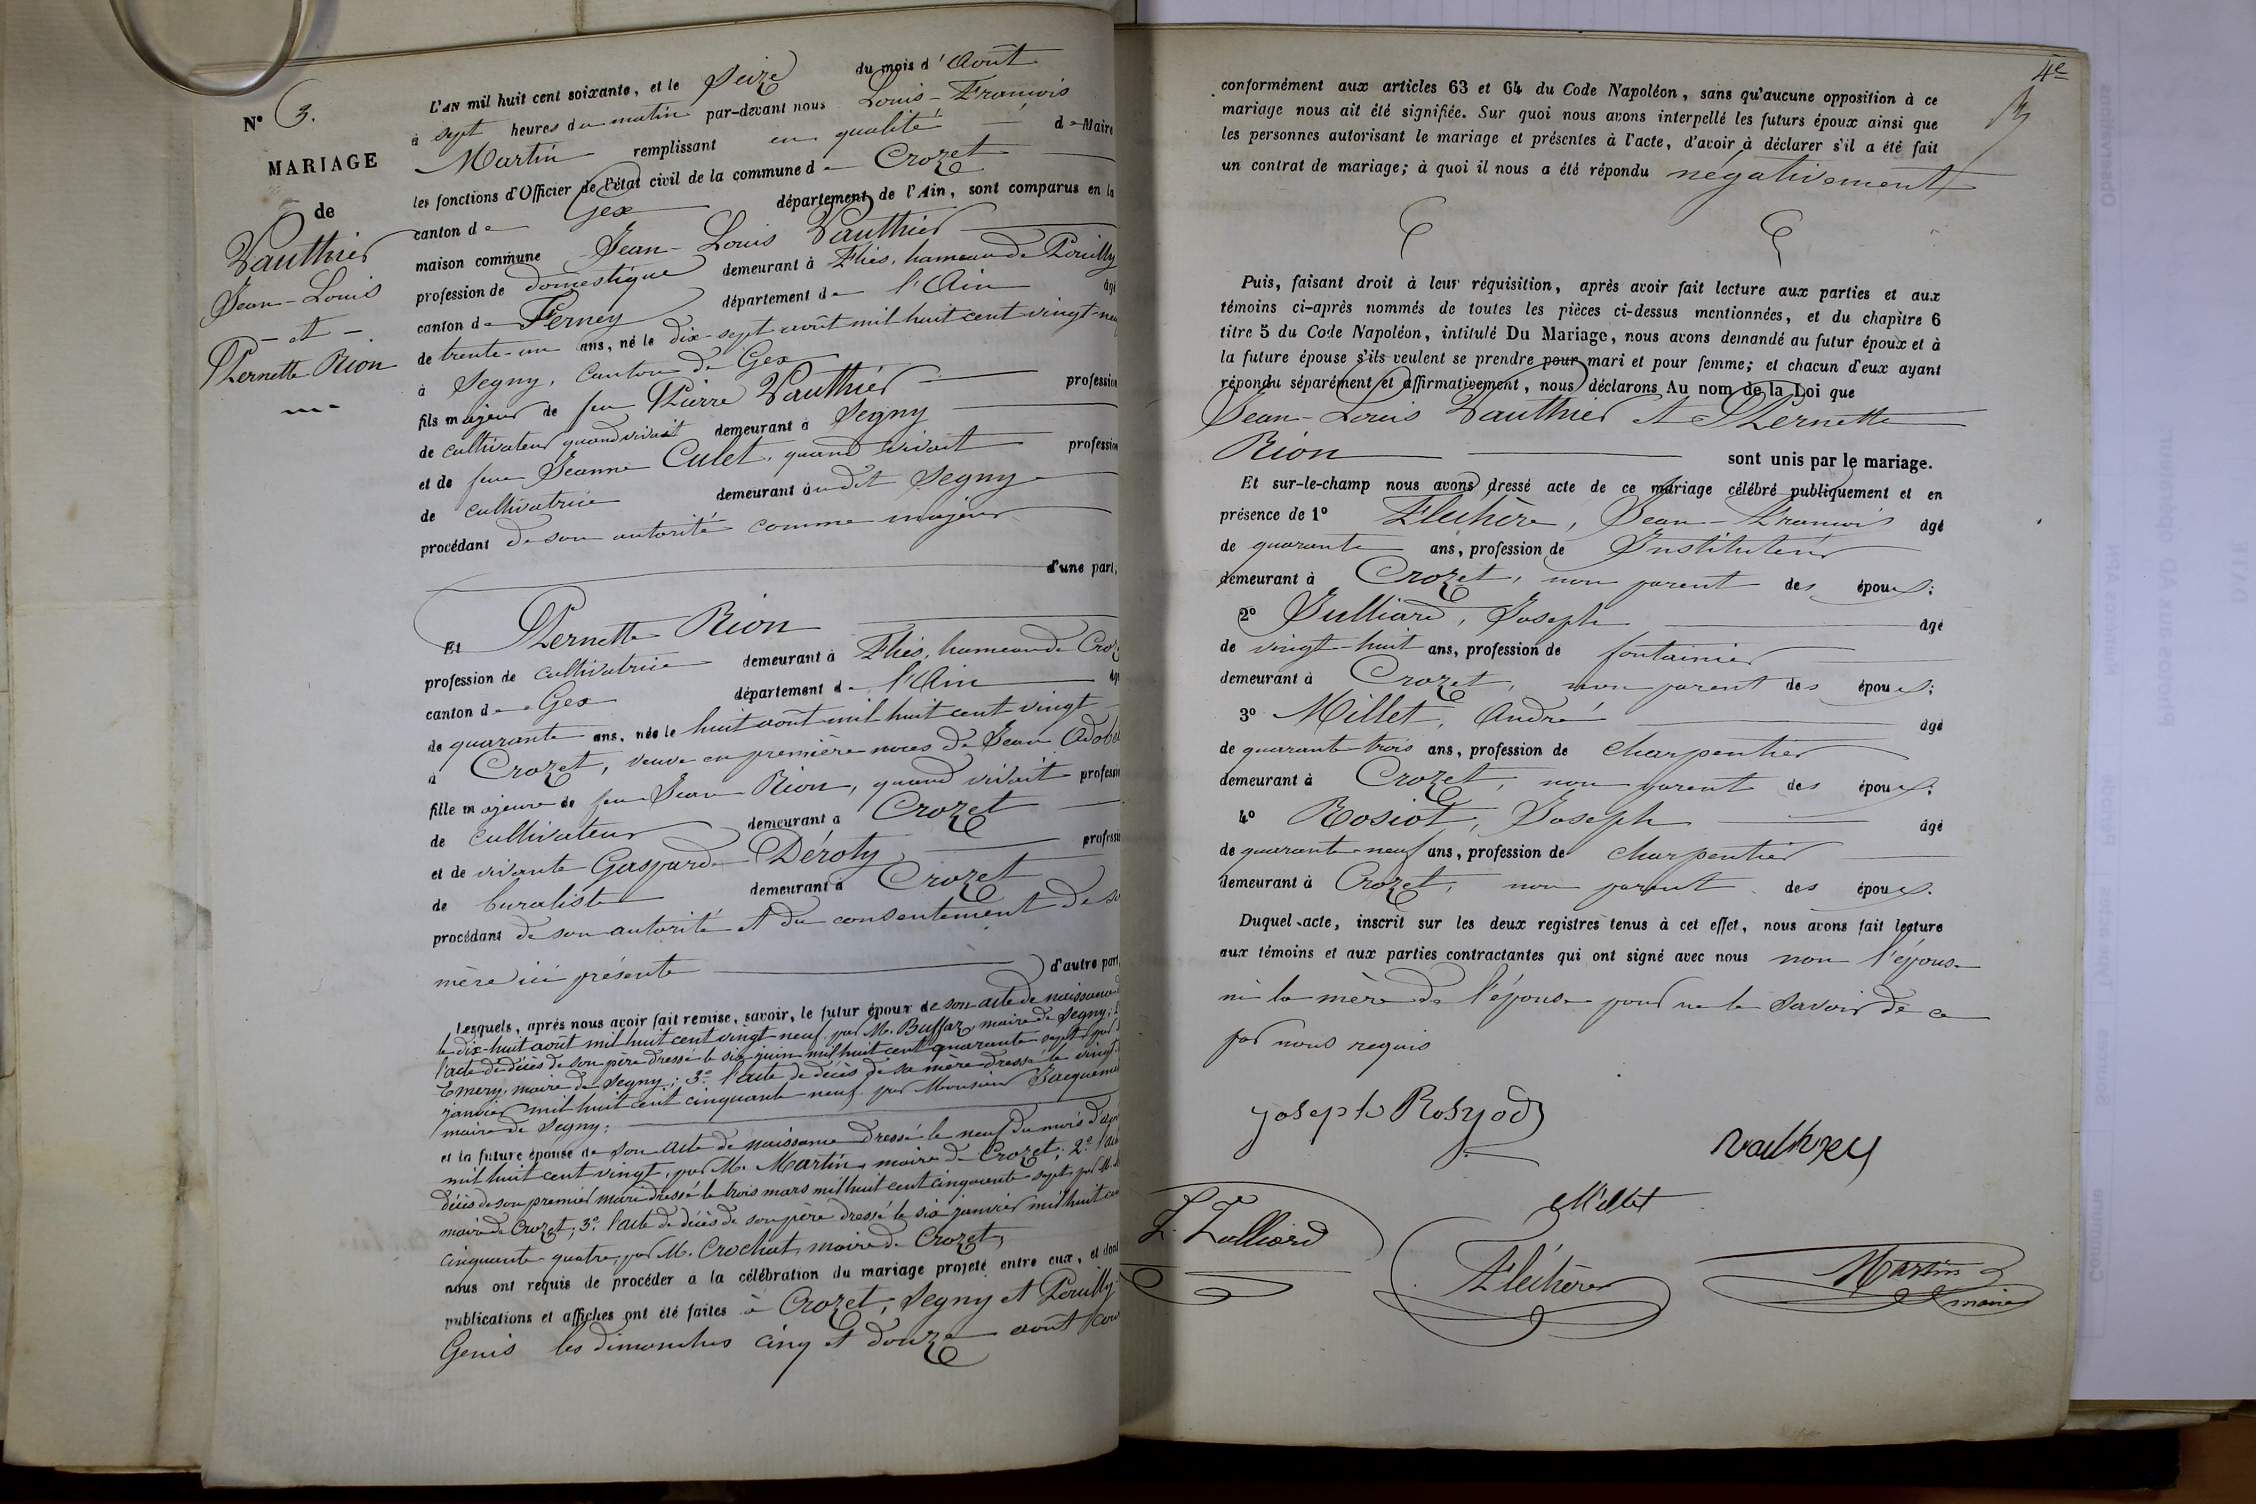 N° 3.
MARIAGE
de
Vauthier
Jean-Louis
- et -
Pernette Rion
L'AN mil huit cent soixante, et le Seize du mois d'Août
à sept heures du matin par-devant nous Louis-François
Martin remplissant en qualité de Maire
les fonctions d'Officier de l'état civil de la commune de Crozet
canton de Gex département de l'Ain, sont comparus en la
maison commune Jean-Louis Vauthier
profession de domestique demeurant à Flies, hameau de Pouilly
canton de Ferney département de l'Ain âgé
de trente-un ans, né le dix-sept août mil huit cent vingt-neuf
à Segny, Canton de Gex
fils majeur de feu Pierre Vauthier profession
de cultivateur quand vivait demeurant à Segny
et de feue Jeanne Culet, quand vivait profession
de cultivatrice demeurant audit Segny
procédant de son autorité comme majeur
d'une part,
Et Pernette Rion
profession de cultivatrice demeurant à Flies, hameau de Croz
canton de Gex département de l'Ain âgé
de quarante ans, née le huit août mil huit cent vingt
à Crozet, veuve en première noces de Jean
fille majeure de feu Jean Rion, quand vivait profession
de cultivateur demeurant à Crozet
et de vivante Gasparde Déroty profession
de buraliste demeurant à Crozet
procédant de son autorité et du consentement de sa
mère ici présente d'autre part
Lesquels, après nous avoir fait remise, savoir, le futur époux de son acte de naissance
le dix-huit août mil huit cent vingt neuf par M. Buffaz, maire de Segny;
l'acte de décès de son père dressé le six juin mil huit cent quarante sept par
Emery, maire de Segny; 3° l'acte de décès de sa mère dressé le vingt
janvier mil huit cent cinquante neuf par Monsieur
maire de Segny;
et la future épouse de son acte de naissance dressé le neuf du mois d'août
mil huit cent vingt, par M. Martin, maire de Crozet; 2° l'acte
décès de son premier mari dressé le trois mars mil huit cent cinquante sept par M.
maire de Crozet; 3° l'acte de décès de son père dressé le six janvier mil huit cent
cinquante-quatre, par M. Crochat, maire de Crozet,
nous ont requis de procéder à la célébration du mariage projeté entre eux, et dont
publications et affiches ont été faites à Crozet, Segny et Pouilly
Genis les dimanches cinq et douze août
4e
conformément aux articles 63 et 64 du Code Napoléon, sans qu'aucune opposition à ce
mariage nous ait été signifiée. Sur quoi nous avons interpellé les futurs époux ainsi que
les personnes autorisant le mariage et présentes à l'acte, d'avoir à déclarer s'il a été fait
un contrat de mariage; à quoi il nous a été répondu négativement
Puis, faisant droit à leur réquisition, après avoir fait lecture aux parties et aux
témoins ci-après nommés de toutes les pièces ci-dessus mentionnées, et du chapitre 6
titre 5 du Code Napoléon, intitulé Du Mariage, nous avons demandé au futur époux et à
la future épouse s'ils veulent se prendre pour mari et pour femme; et chacun d'eux ayant
répondu séparément et affirmativement, nous déclarons Au nom de la Loi que
Jean-Louis Vauthier et Pernette
Rion sont unis par le mariage.
Et sur-le-champ nous avons dressé acte de ce mariage célébré publiquement et en
présence de 1° Fléchère, Jean-François âgé
de quarante ans, profession de Instituteur
demeurant à Crozet, non parent des époux;
2° Julliard, Joseph âgé
de vingt-huit ans, profession de fontainier
demeurant à Crozet, non parent des époux;
3° Millet, André âgé
de quarante-trois ans, profession de charpentier
demeurant à Crozet, non parent des époux;
4° Rosiot, Joseph âgé
de quarante-neuf ans, profession de charpentier
demeurant à Crozet, non parent des époux.
Duquel acte, inscrit sur les deux registres tenus à cet effet, nous avons fait lecture
aux témoins et aux parties contractantes qui ont signé avec nous non l'épouse
ni la mère de l'épouse pour ne le savoir de ce
par nous requis
joseph Rosyod
Millet
Fléchère
Martin
maire